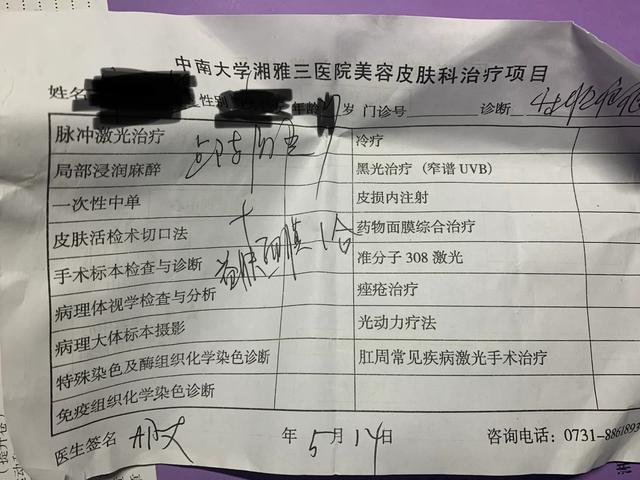 中南大学湘雅三医院美容皮肤科治疗项目
姓名 性别 年龄 岁 门诊号 诊断
脉冲激光治疗 冷疗
局部浸润麻醉 黑光治疗（窄谱 UVB）
一次性中单 皮损内注射
皮肤活检术切口法 药物面膜综合治疗
面膜 1 合
手术标本检查与诊断 准分子 308 激光
病理体视学检查与分析 痤疮治疗
病理大体标本摄影 光动力疗法
特殊染色及酶组织化学染色诊断 肛周常见疾病激光手术治疗
免疫组织化学染色诊断
医生签名 年 5 月 14 日 咨询电话：0731-8861893